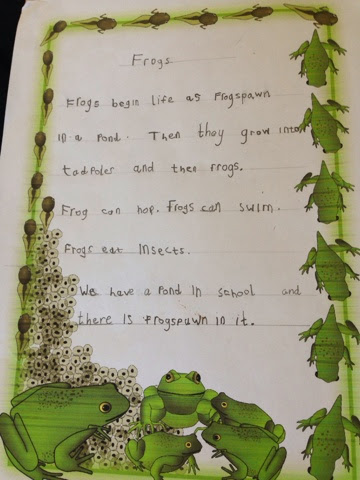 Frogs
Frogs begin life as frogspawn
in a pond. Then they grow into
tadpoles and then frogs.
Frog can hop. Frogs can swim.
Frogs eat insects.
We have a pond in school and
there is frogspawn in it.